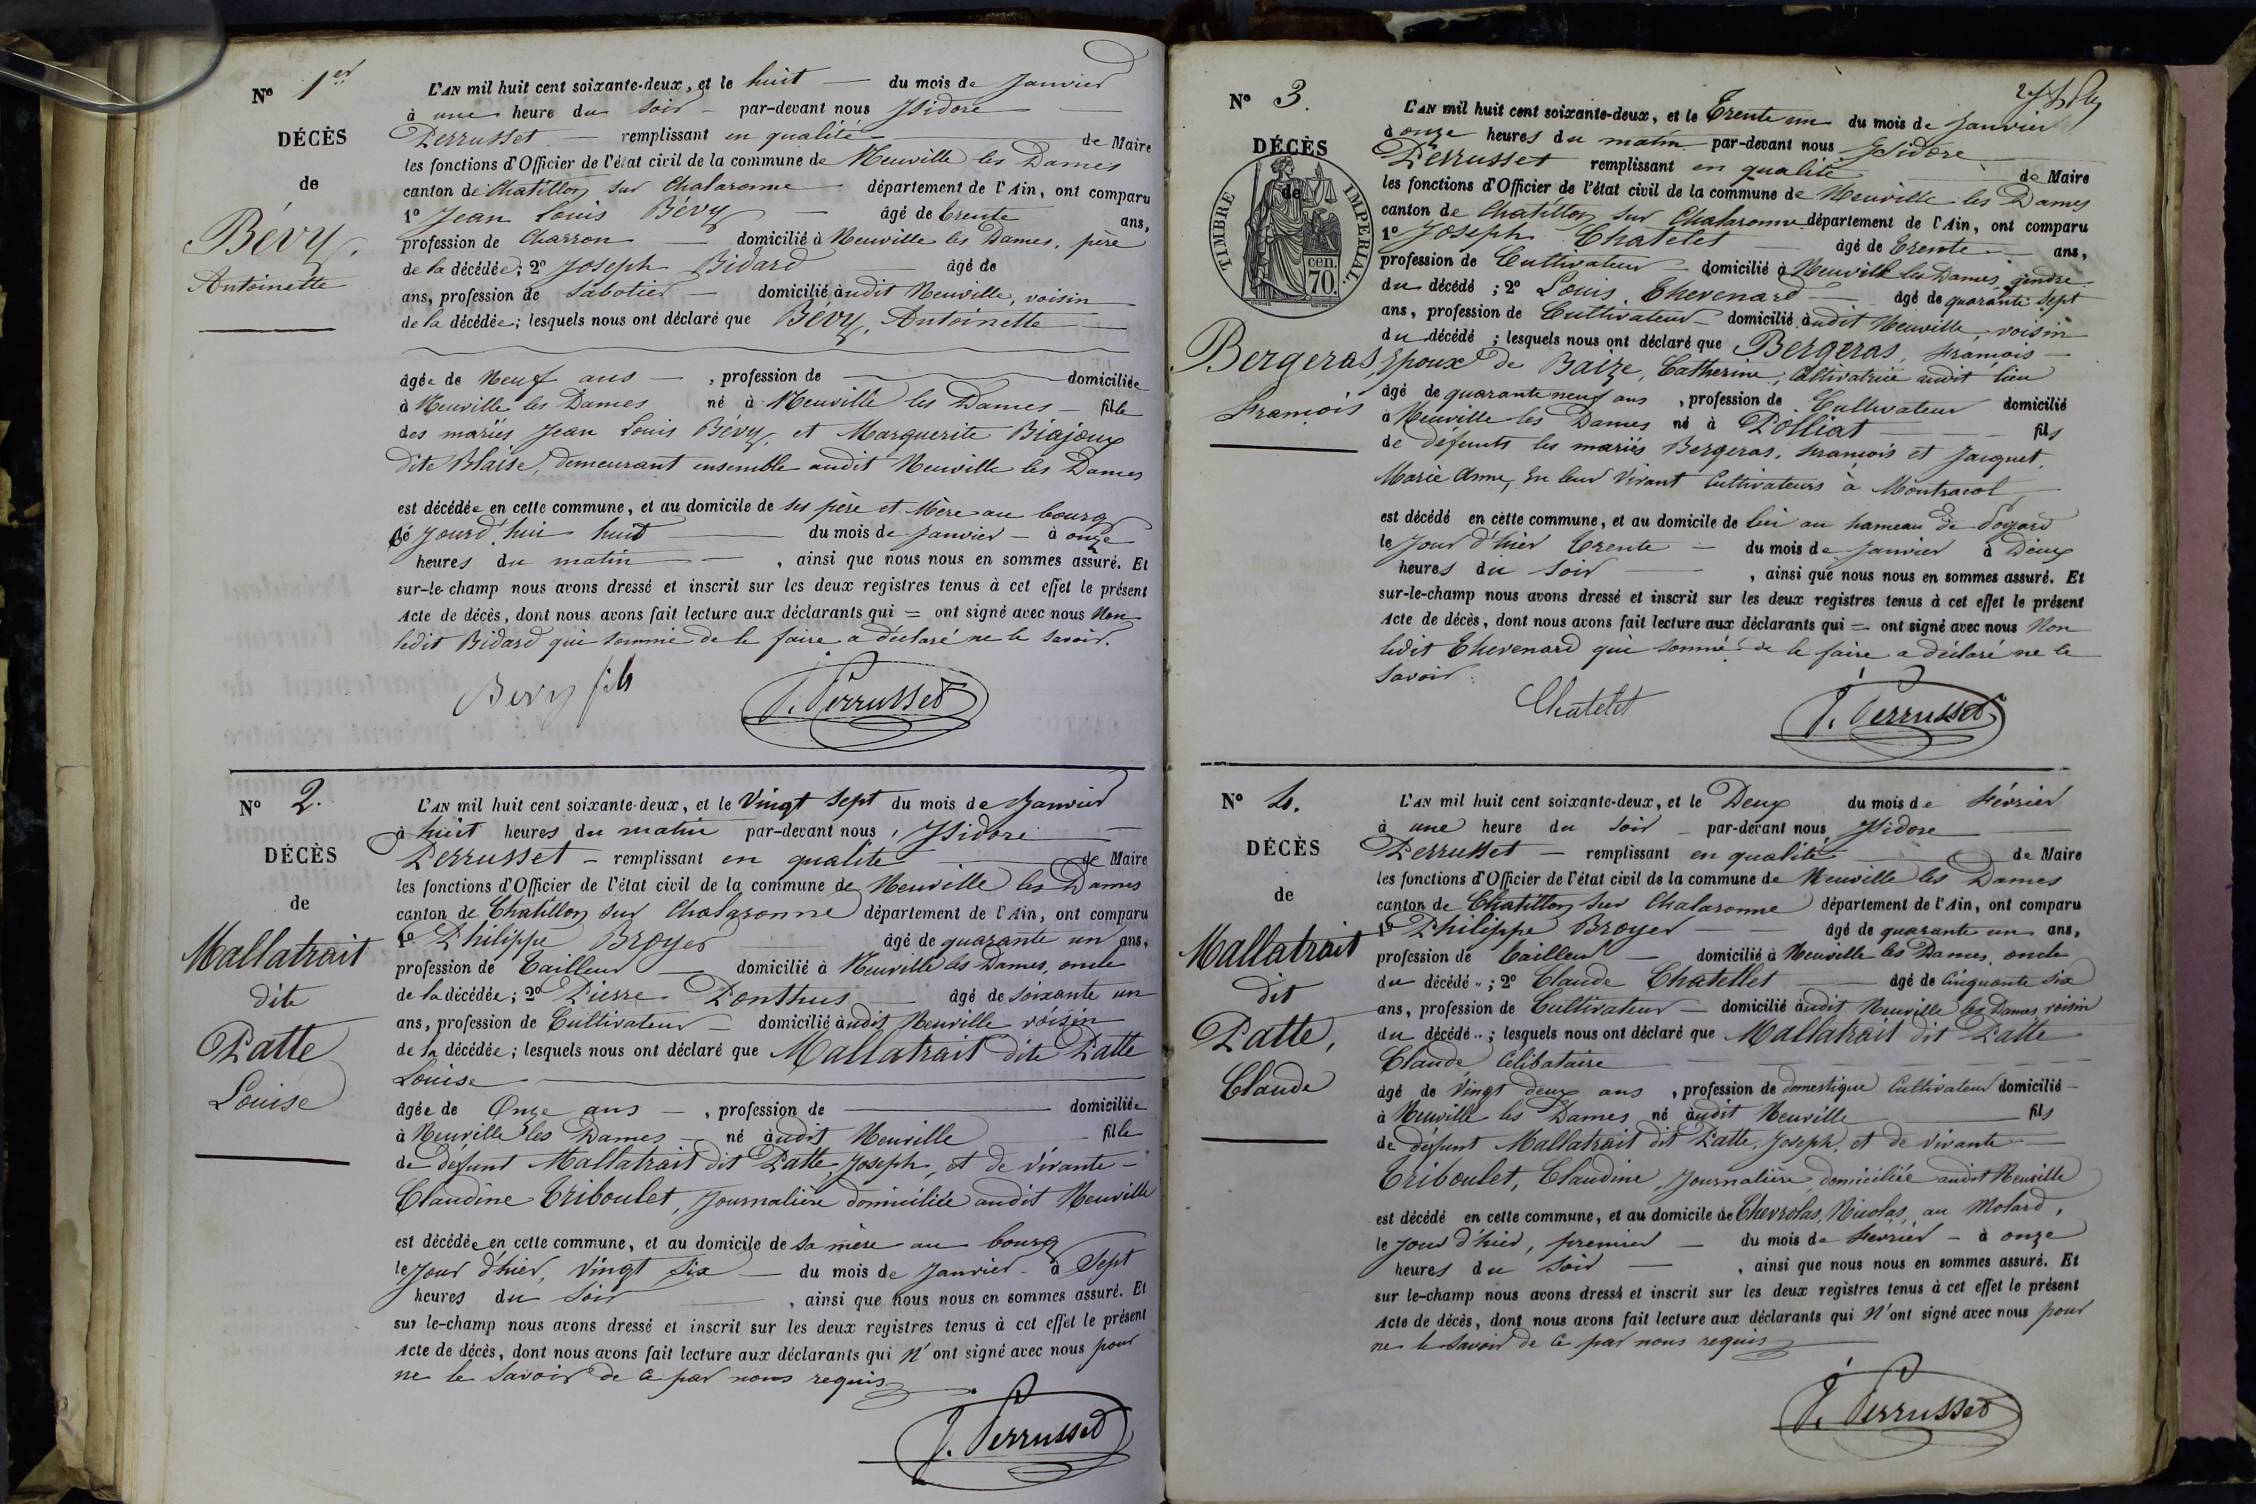 N° 1er
DÉCÈS
de
Bévy,
Antoinette
L'AN mil huit cent soixante-deux, et le huit du mois de Janvier
à une heure du soir par-devant nous Isidore
Perrusset remplissant en qualité de Maire
les fonctions d'Officier de l'état civil de la commune de Neuville les Dames
canton de Chatillon sur Chalaronne département de l'Ain, ont comparu
1° Jean Louis Bévy âgé de trente ans,
profession de Charron domicilié à Neuville les Dames, père
de la décédée; 2° Joseph Bidard âgé de
ans, profession de Sabotier domicilié audit Neuville, voisin
de la décédée; lesquels nous ont déclaré que Bévy, Antoinette
âgée de Neuf ans, profession de domiciliée
à Neuville les Dames né à Neuville les Dames fille
des mariés Jean Louis Bévy, et Marguerite Biajoux
dite Blaise, demeurant ensemble audit Neuville les Dames
est décédée en cette commune, et au domicile de ses père et Mère au bourg
ce jourd'hui huit du mois de Janvier à onze
heures du matin, ainsi que nous nous en sommes assuré. Et
sur-le-champ nous avons dressé et inscrit sur les deux registres tenus à cet effet le présent
Acte de décès, dont nous avons fait lecture aux déclarants qui = ont signé avec nous Non
ledit Bidard qui sommé de le faire a déclaré ne le savoir.
Bevy fils J. Perrusset
N° 2.
DÉCÈS
de
Mallatrait
dite
Patte
Louise
L'AN mil huit cent soixante-deux, et le Vingt sept du mois de Janvier
à huit heures du matin par-devant nous, Isidore
Perrusset remplissant en qualité de Maire
les fonctions d'Officier de l'état civil de la commune de Neuville les Dames
canton de Chatillon sur Chalaronne département de l'Ain, ont comparu
1° Philippe Broyer âgé de quarante un ans,
profession de Tailleur domicilié à Neuville les Dames, oncle
de la décédée; 2° Pierre Ponthus âgé de soixante un
ans, profession de Cultivateur domicilié audit Neuville voisin
de la décédée; lesquels nous ont déclaré que Mallatrait dite Patte
Louise
âgée de Onze ans, profession de domiciliée
à Neuville les Dames né audit Neuville fille
de défunt Mallatrait dit Patte, Joseph, et de vivante
Claudine Triboulet, Journalière domiciliée audit Neuville
est décédée en cette commune, et au domicile de sa mère au bourg
le Jour d'hier, Vingt six du mois de Janvier à Sept
heures du soir, ainsi que nous nous en sommes assuré. Et
sur le-champ nous avons dressé et inscrit sur les deux registres tenus à cet effet le présent
Acte de décès, dont nous avons fait lecture aux déclarants qui N'ont signé avec nous pour
ne le savoir de ce par nous requis
J. Perrusset
N° 3.
DÉCÈS
de
TIMBRE IMPÉRIAL.
cen.
70.
Bergeras,
François
L'AN mil huit cent soixante-deux, et le Trente un du mois de Janvier
à onze heures du matin par-devant nous Isidore
Perrusset remplissant en qualité de Maire
les fonctions d'Officier de l'état civil de la commune de Neuville les Dames
canton de Chatillon sur Chalaronne département de l'Ain, ont comparu
1° Joseph Chatelet âgé de trente ans,
profession de Cultivateur domicilié à Neuville les Dames, gendre
du décédé; 2° Louis Thevenard âgé de quarante sept
ans, profession de Cultivateur domicilié audit Neuville, voisin
du décédé; lesquels nous ont déclaré que Bergeras, François
Epoux de Baize, Catherine, Cultivatrice audit lieu
âgé de quarante neuf ans, profession de Cultivateur domicilié
à Neuville les Dames né à Polliat fils
de défunts les mariés Bergeras, François et Jacquet,
Marie Anne, en leur Vivant Cultivateurs à Montracol
est décédé en cette commune, et au domicile de lui au hameau de
le Jour d'hier trente du mois de Janvier à Deux
heures du soir, ainsi que nous nous en sommes assuré. Et
sur-le-champ nous avons dressé et inscrit sur les deux registres tenus à cet effet le présent
Acte de décès, dont nous avons fait lecture aux déclarants qui = ont signé avec nous Non
ledit Thevenard qui sommé de le faire a déclaré ne le
savoir.
Chatelet J. Perrusset
N° 4.
DÉCÈS
de
Mallatrait
dit
Patte,
Claude
L'AN mil huit cent soixante-deux, et le Deux du mois de Février
à une heure du soir par-devant nous Isidore
Perrusset remplissant en qualité de Maire
les fonctions d'Officier de l'état civil de la commune de Neuville les Dames
canton de Chatillon sur Chalaronne département de l'Ain, ont comparu
1° Philippe Broyer âgé de quarante un ans,
profession de tailleur domicilié à Neuville les Dames, oncle
du décédé; 2° Claude Chatellet âgé de Cinquante six
ans, profession de Cultivateur domicilié audit Neuville les Dames, voisin
du décédé; lesquels nous ont déclaré que Mallatrait dit Patte
Claude, Célibataire
âgé de Vingt deux ans, profession de domestique Cultivateur domicilié
à Neuville les Dames né audit Neuville fils
de défunt Mallatrait dit Patte, Joseph, et de vivante
Triboulet, Claudine, Journalière, domiciliée audit Neuville
est décédé en cette commune, et au domicile de Chevrolas, Nicolas, au Molard,
le Jour d'hier, premier du mois de Février à onze
heures du soir, ainsi que nous nous en sommes assuré. Et
sur le-champ nous avons dressé et inscrit sur les deux registres tenus à cet effet le présent
Acte de décès, dont nous avons fait lecture aux déclarants qui N'ont signé avec nous pour
ne le savoir de ce par nous requis
J. Perrusset